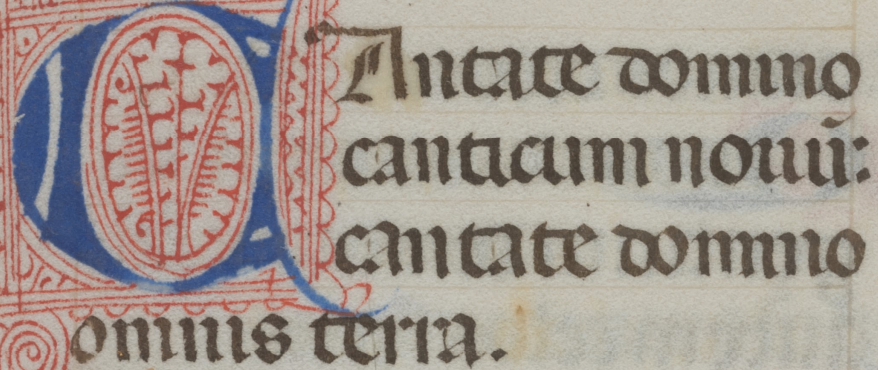 CAntate domino
canticum nouũ:
cantate domino
omnis terra.